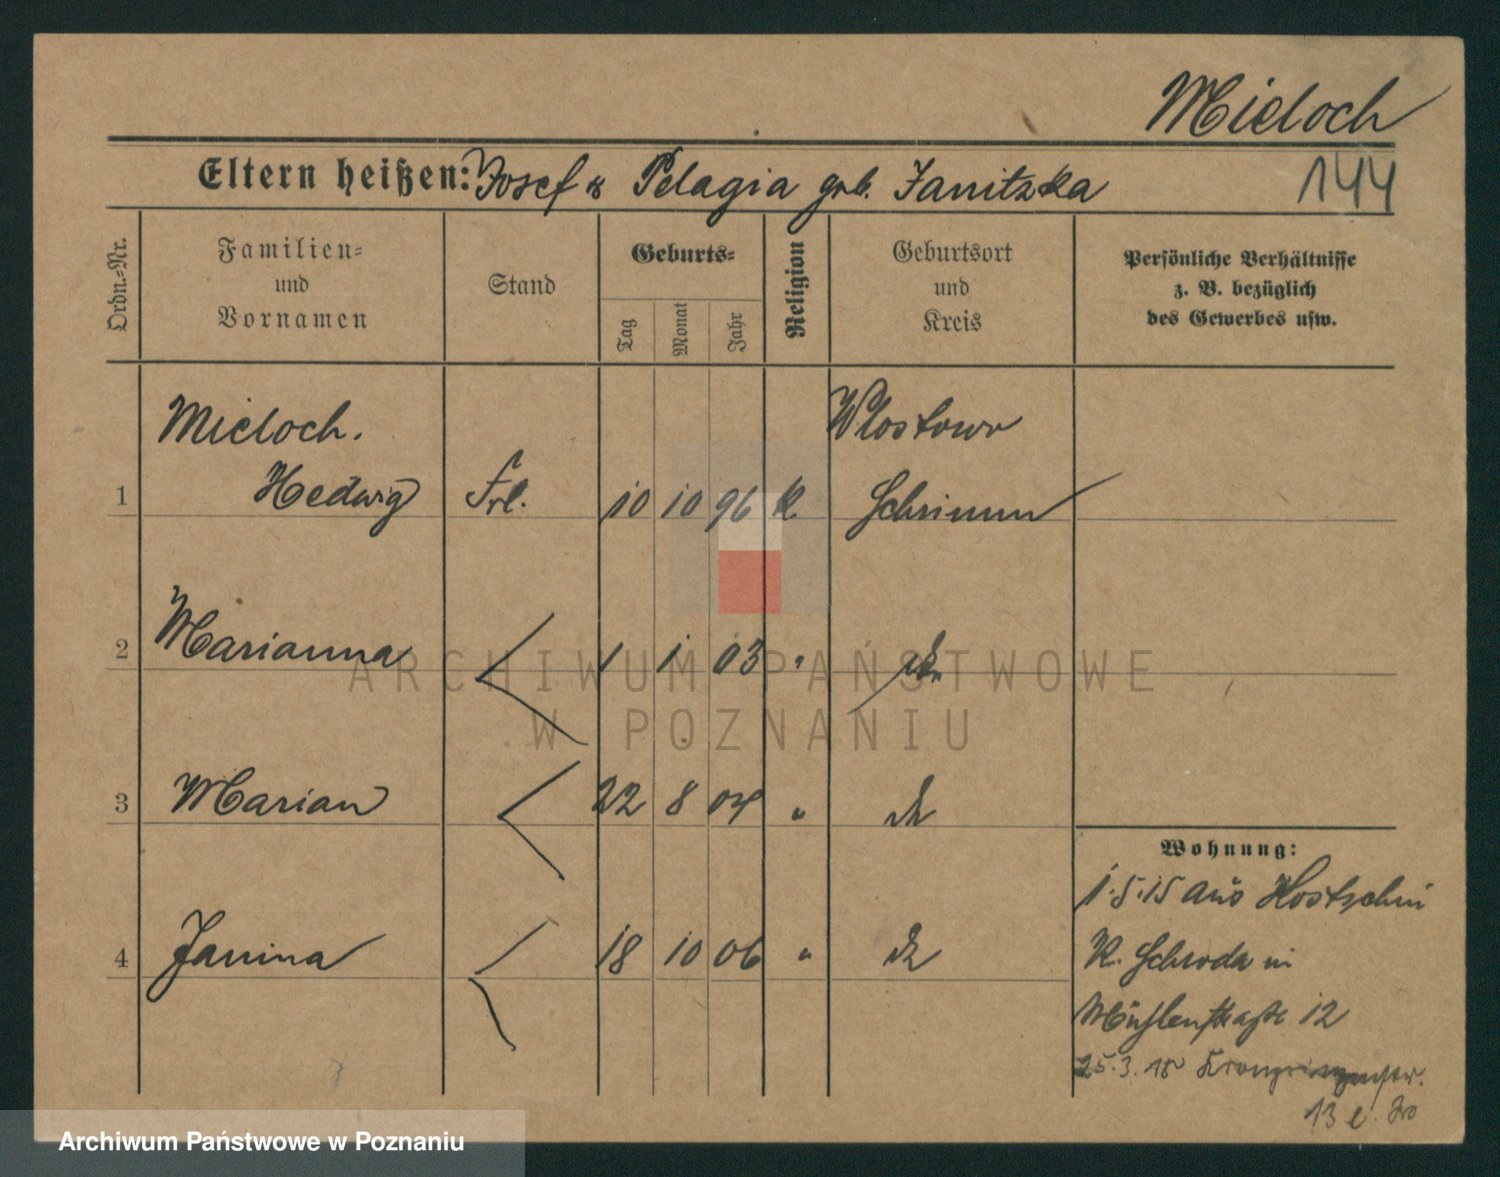 Mieloch
Eltern heißen: Josef & Pelagia geb. Janitzka
144
Ordn.=Nr.
Familien=
und
Vornamen
Stand
Geburts=
Tag
Monat
Jahr
Religion
Geburtsort
und
Kreis
Persönliche Verhältnisse
z. B. bezüglich
des Gewerbes usw.
Mieloch. Wlostowo
1 Hedwig Frl. 10 10 96 K. Schrimm
2 Marianna 1 1 03 "
3 Marian 22 8 04 "
4 Janina 18 10 06 "
Wohnung:
1.5.15 aus Hostschin
K. Schroda in
Mühlenstraße 12
25.3.18 Kronprinzenstr.
13
ARCHIWUM PAŃSTWOWE
W POZNANIU
Archiwum Państwowe w Poznaniu